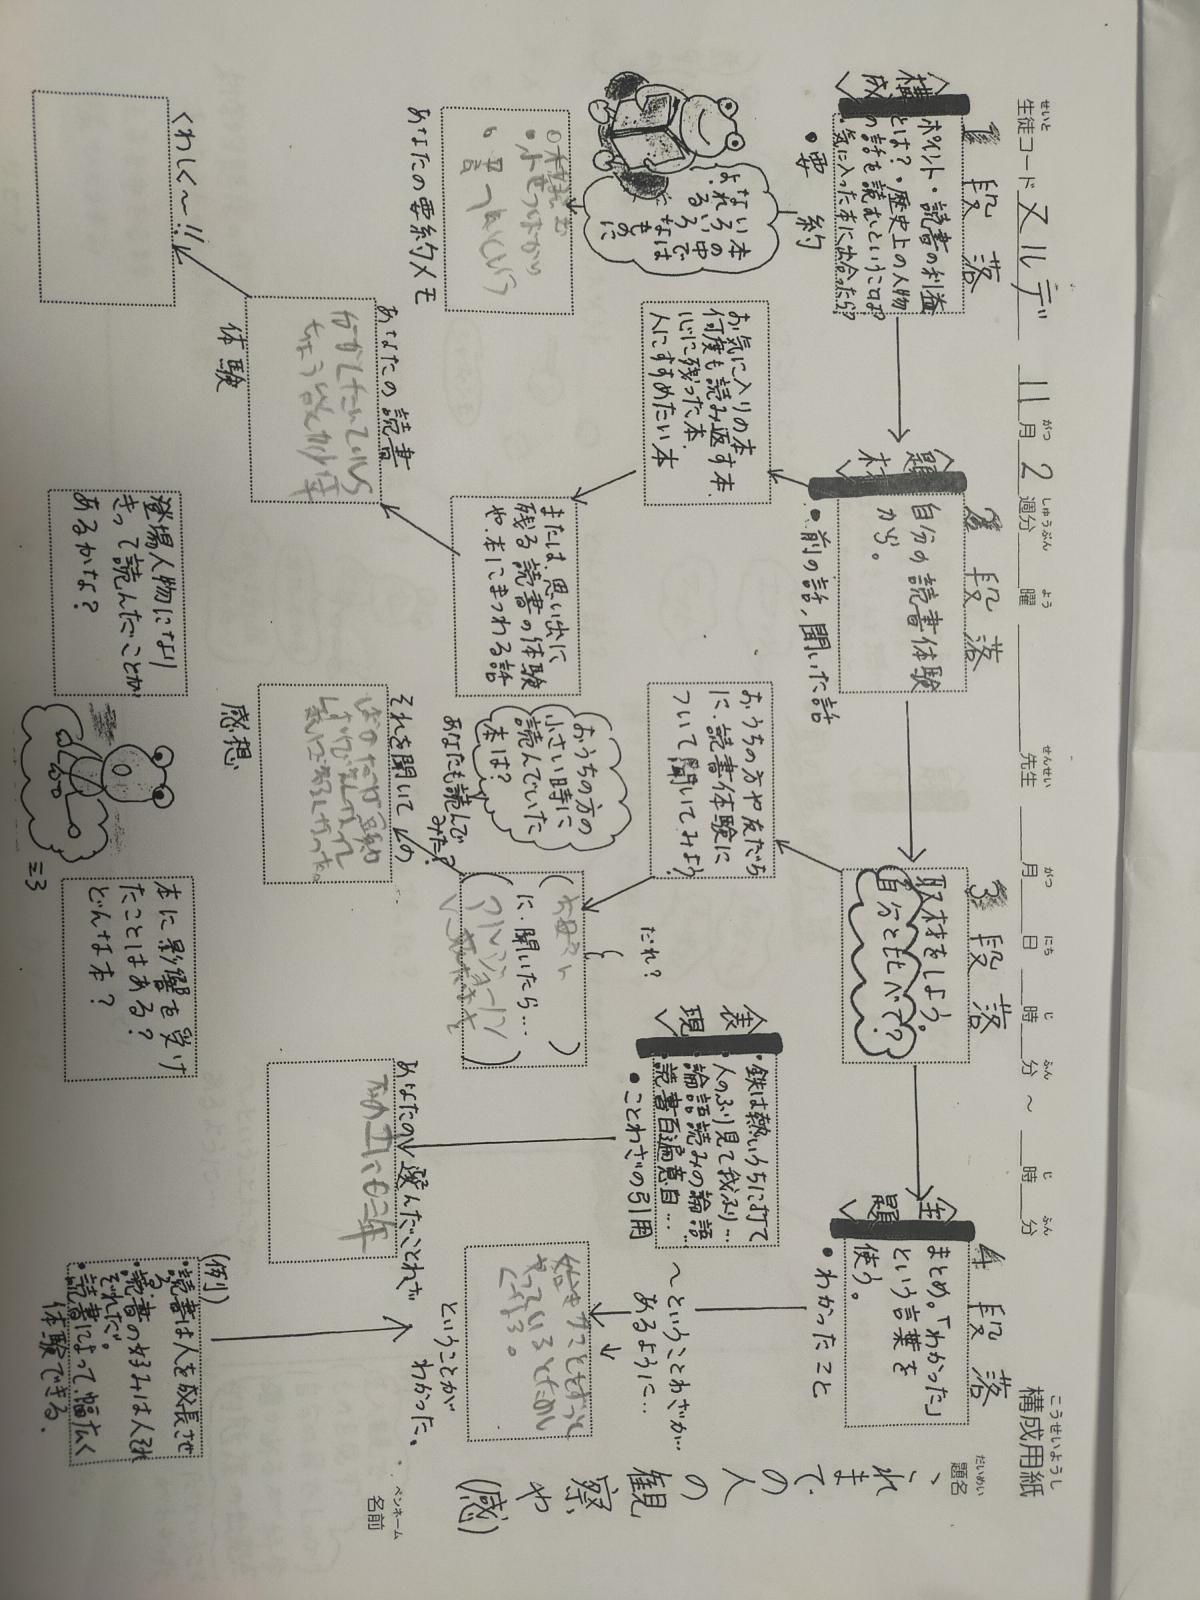 構成用紙
こうせいようし
せいと
生徒コード ヌルデ 11月 2週分 曜 先生 月 日 時 分 ～ 時 分
がつ しゅうぶん よう せんせい がつ にち じ ふん じ ふん
だいめい
題名
、れまでの人の観察や(感)
ペンネーム
名前
1段落
〈構成〉
ポイント・読書の利益
とは?・歴史上の人物
の話を読むということは?
・気に入った本に出会ったら?
●要約
ない本
よ。れろ、の中
るろで
なは
もの
に
あなたの要約メモ
2段落
〈題材〉
自分の読書体験
から。
●前の話、聞いた話
お気に入りの本
何度も読み返す本、
心に残った本、
人にすすめたい本
または、思い出に
残る読書の体験
や、本にまつわる話
あなたの読書
体験
くわしく〜!!
登場人物になり
きって読んだことが
あるかな?
3段落
取材をしよう。
自分と比べて?
おうちの方や友だち
に、読書体験に
ついて聞いてみよう?
おうちの方の
小さい時に
読んでいた
本は?
あなたも読んで
みた?
だれ?
(お母さん)
に、聞いたら…
それを聞いての
感想
本に影響を受け
たことはある?
どんな本?
ミ3
4段落
〈主題〉
まとめ。「わかった」
という言葉を
使う。
●わかったこと
〈表現〉
・鉄は熱いうちに打て
・人のふり見て我ふり…
・論語読みの論語…
・読書百遍意自…
●ことわざの引用
あなたの選んだことわざ
〜ということわざが…
あるように…
ということが
わかった。
(例)
・読書は人を成長させ
る。
・読書の好みは人それ
ぞれだ。
・読書によって、幅広く
体験できる。